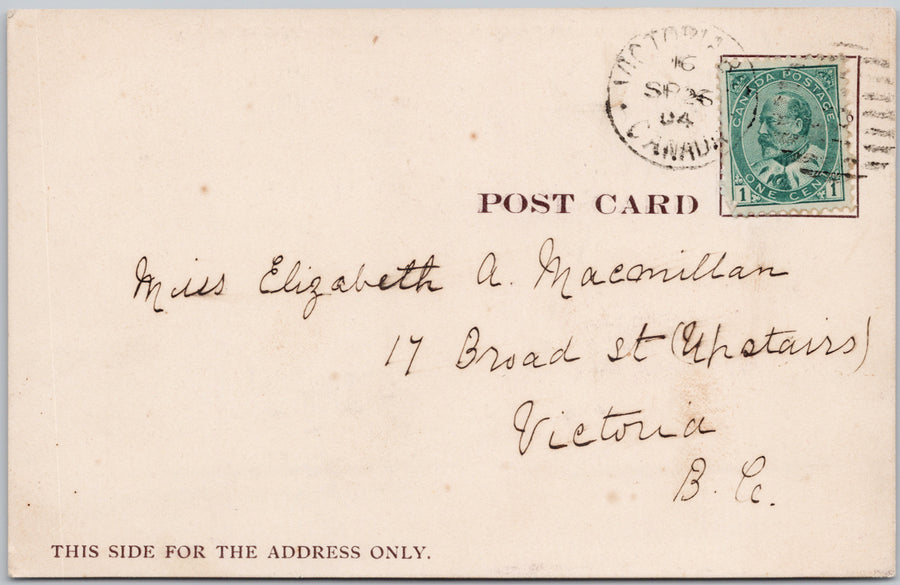 VICTORIA B
16
SP 26
04
CANADA
CANADA POSTAGE
ONE CENT
1 1
POST CARD
Miss Elizabeth A. Macmillan
17 Broad st (Upstairs)
Victoria
B. C.
THIS SIDE FOR THE ADDRESS ONLY.